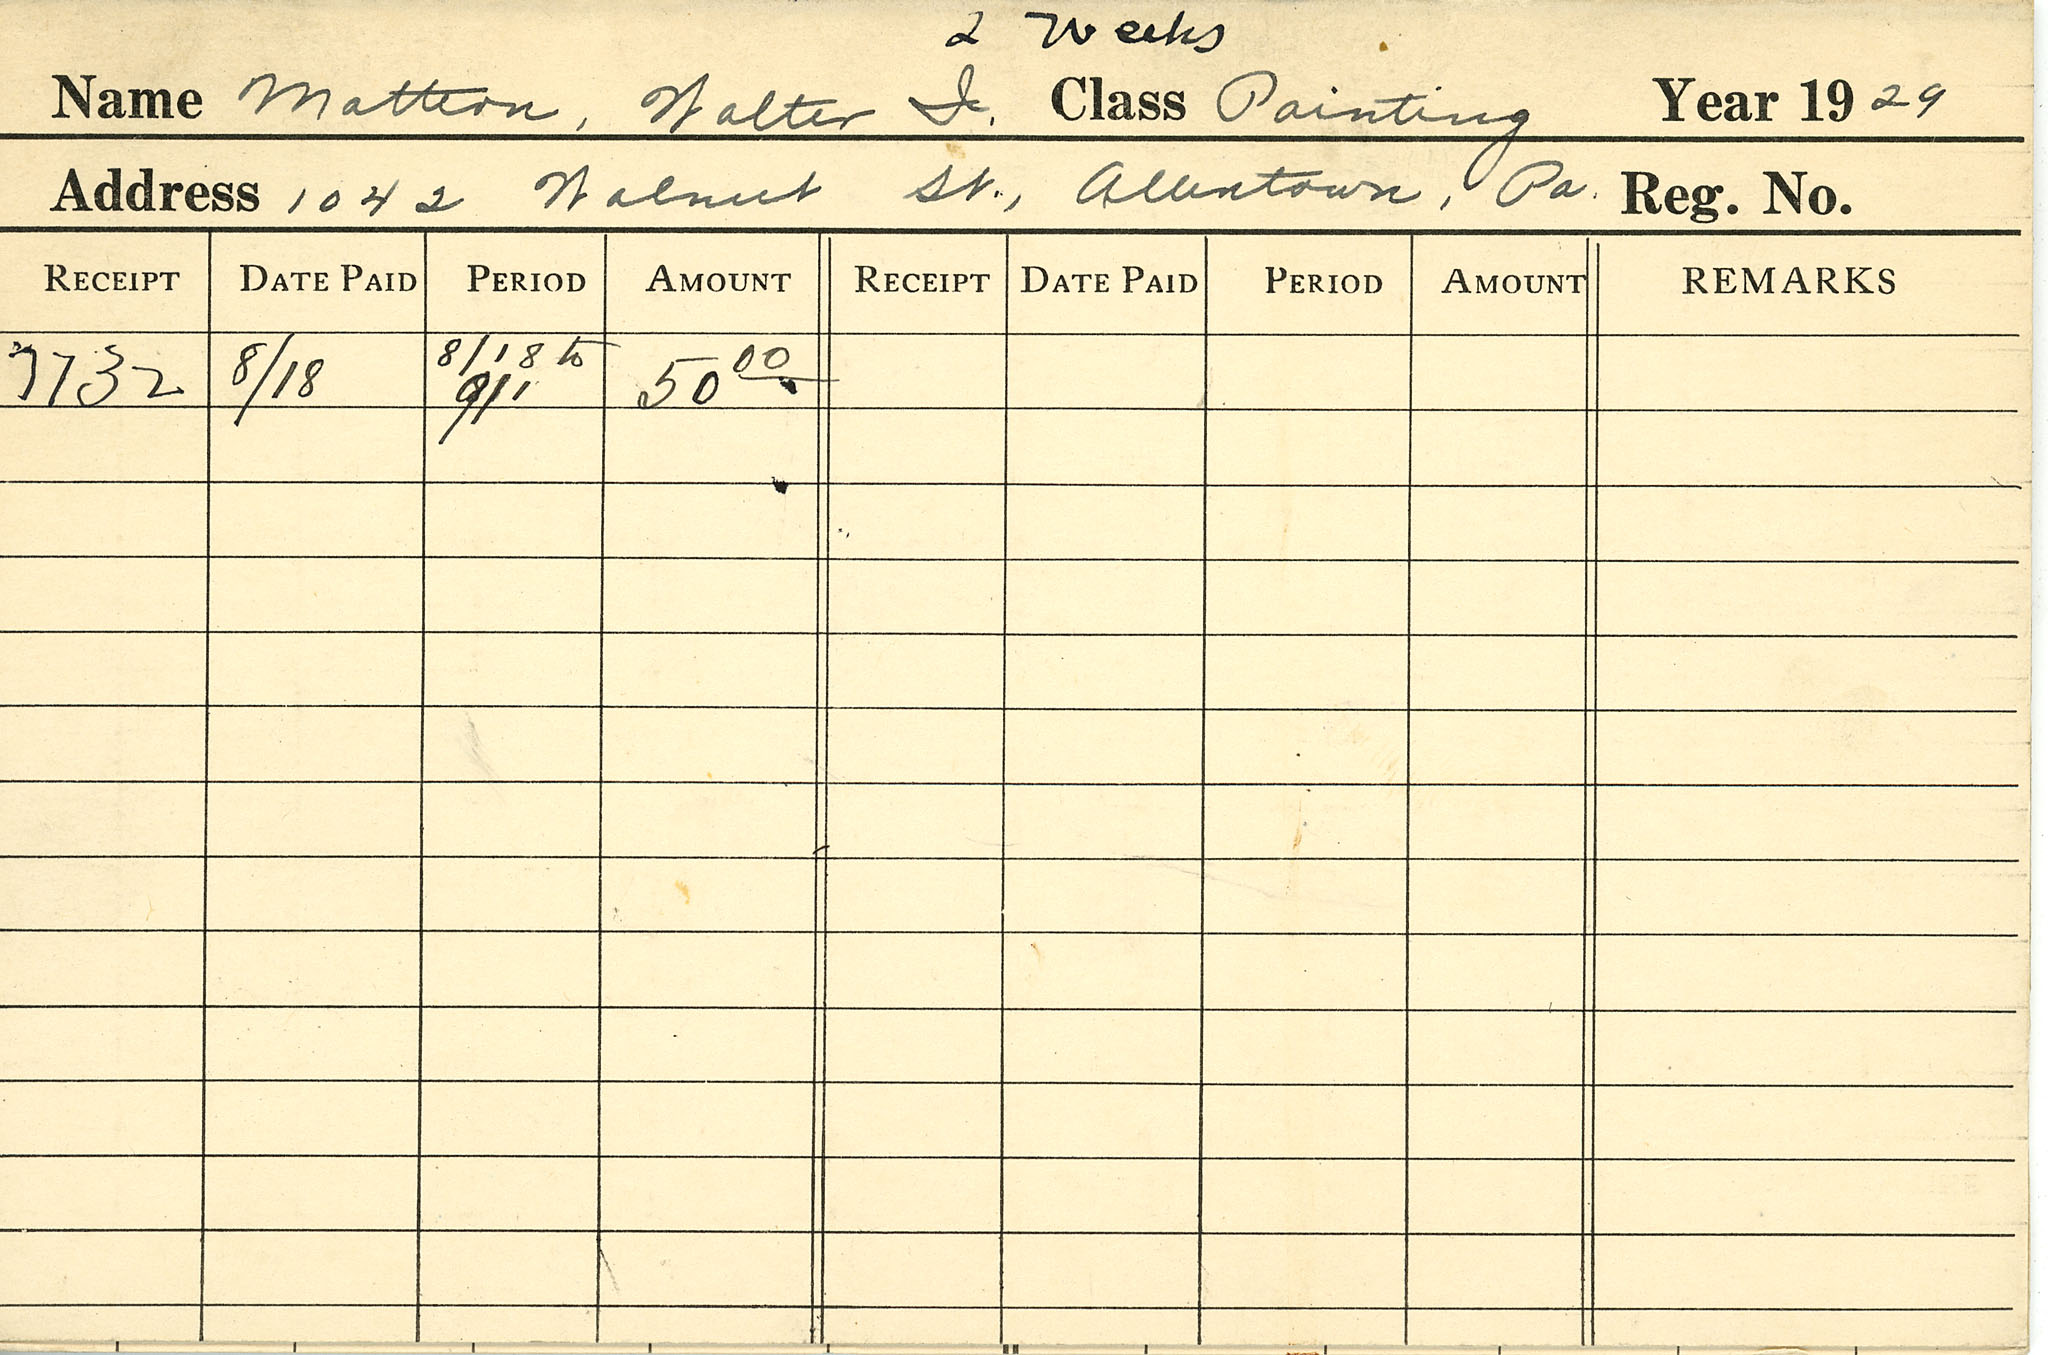 2 Weeks
Name Mattern, Walter I. Class Painting Year 1929
Address 1042 Walnut St., Allentown, Pa. Reg. No.
RECEIPT DATE PAID PERIOD AMOUNT RECEIPT DATE PAID PERIOD AMOUNT REMARKS
7732 8/18 8/18 to 50 00
9/1